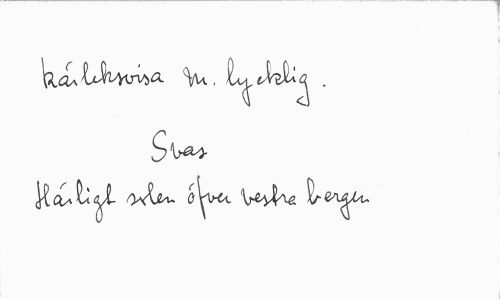 Kärleksvisa m. lycklig.
Svas
Härligt solen öfver vestra bergen